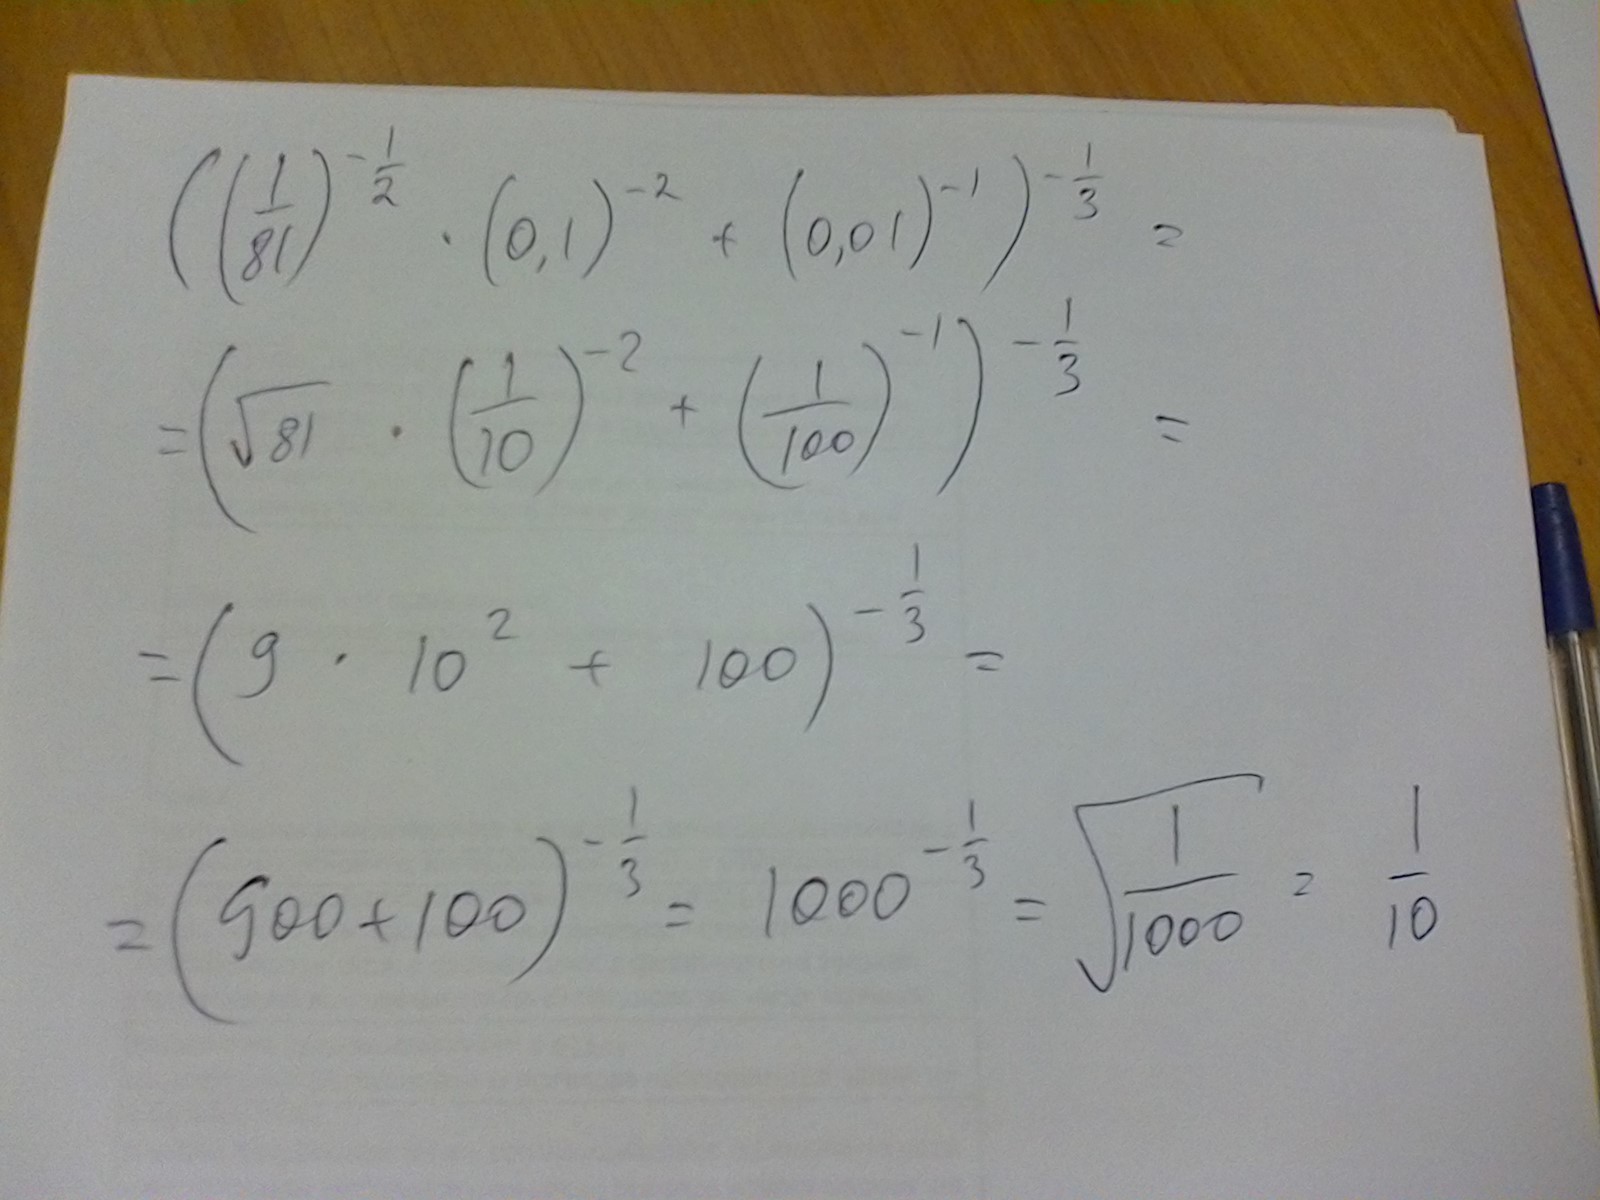 ((1/81)^(-1/2) · (0,1)^(-2) + (0,01)^(-1))^(-1/3) =
= (√81 · (1/10)^(-2) + (1/100)^(-1))^(-1/3) =
= (9 · 10^2 + 100)^(-1/3) =
= (900 + 100)^(-1/3) = 1000^(-1/3) = √(1/1000) = 1/10